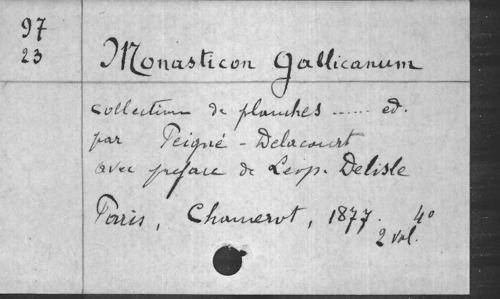 97
23
Monasticon Gallicanum
Collection de planches ...... ed.
par Peigné-Delacourt
avec preface de Leop. Delisle
Paris, Chamerot, 1877. 4°
2 vol.